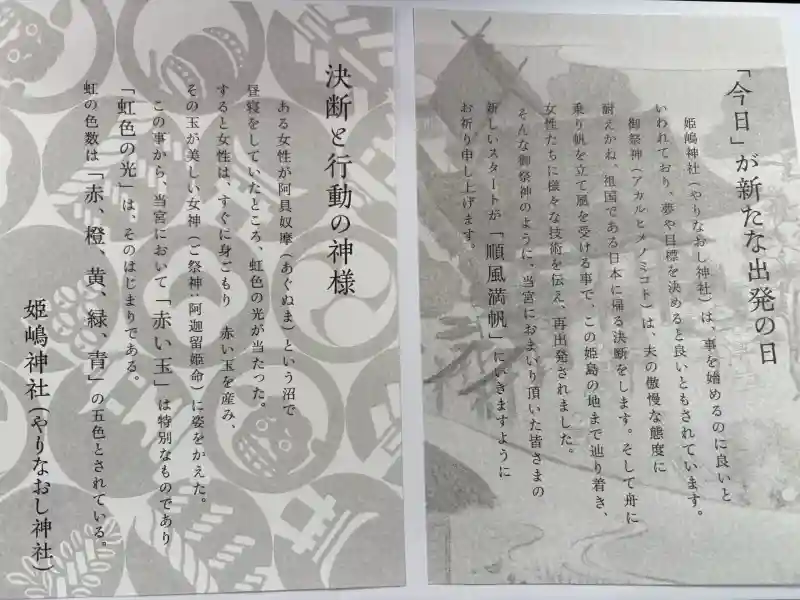 「今日」が新たな出発の日
姫嶋神社(やりなおし神社)は、事を始めるのに良いと
いわれており、夢や目標を決めると良いともされています。
御祭神(アカルヒメノミコト)は、夫の傲慢な態度に
耐えかね、祖国である日本に帰る決断をします。そして舟に
乗り帆を立て風を受ける事で、この姫島の地まで辿り着き、
女性たちに様々な技術を伝え、再出発されました。
そんな御祭神のように、当宮におまいり頂いた皆さまの
新しいスタートが「順風満帆」にいきますように
お祈り申し上げます。
決断と行動の神様
ある女性が阿具奴摩(あぐぬま)という沼で
昼寝をしていたところ、虹色の光が当たった。
すると女性は、すぐに身ごもり 赤い玉を産み、
その玉が美しい女神(ご祭神:阿迦留姫命)に姿をかえた。
この事から、当宮において「赤い玉」は特別なものであり
「虹色の光」は、そのはじまりである。
虹の色数は「赤、橙、黄、緑、青」の五色とされている。
姫嶋神社(やりなおし神社)